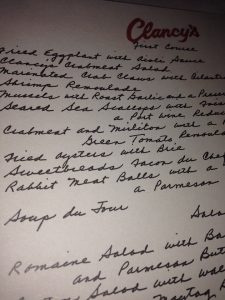 Clancy's
First Course
Fried Eggplant with Aioli Sauce
Clancy's Crabmeat Salad
Marinated Crab Claws with
Shrimp Remoulade
Mussels with Roast Garlic and a
Seared Sea Scallops with
a Port Wine
Crabmeat and Mirliton with a
Green Tomato
Fried Oysters with Brie
Sweetbreads Facon du Chef
Rabbit Meat Balls with a
a Parmesan
Soup du Jour
Romaine Salad with
and Parmesan
Salad with